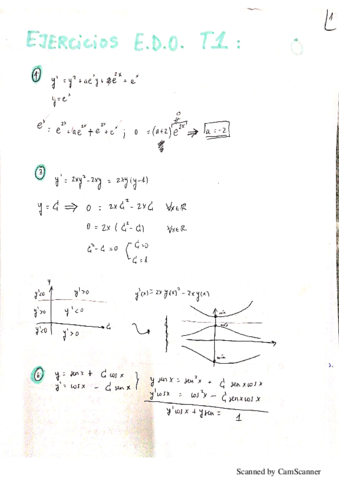 1
EJERCICIOS E.D.O. T1:
1
y' = y² + ae^x y + e^{2x} + e^x
y = e^x
e^x = e^{2x} + ae^{2x} + e^{2x} + e^x ; 0 = (a+2) e^{2x} ⟹ a = -2
3
y' = 2xy² - 2xy = 2xy(y-1)
y = C₁ ⟹ 0 = 2xC₁² - 2xC₁ ∀x∈ℝ
0 = 2x (C₁² - C₁) ∀x∈ℝ
C₁² - C₁ = 0 { C₁=0
C₁=1
y'(x) = 2xy(x)² - 2xy(x)
y'<0 y'>0
y'>0 y'<0
y'<0 y'>0
6
y = sen x + C₁ cos x
y' = cos x - C₁ sen x
y sen x = sen² x + C₁ sen x cos x
y' cos x = cos² x - C₁ sen x cos x
y' cos x + y sen x = 1
Scanned by CamScanner